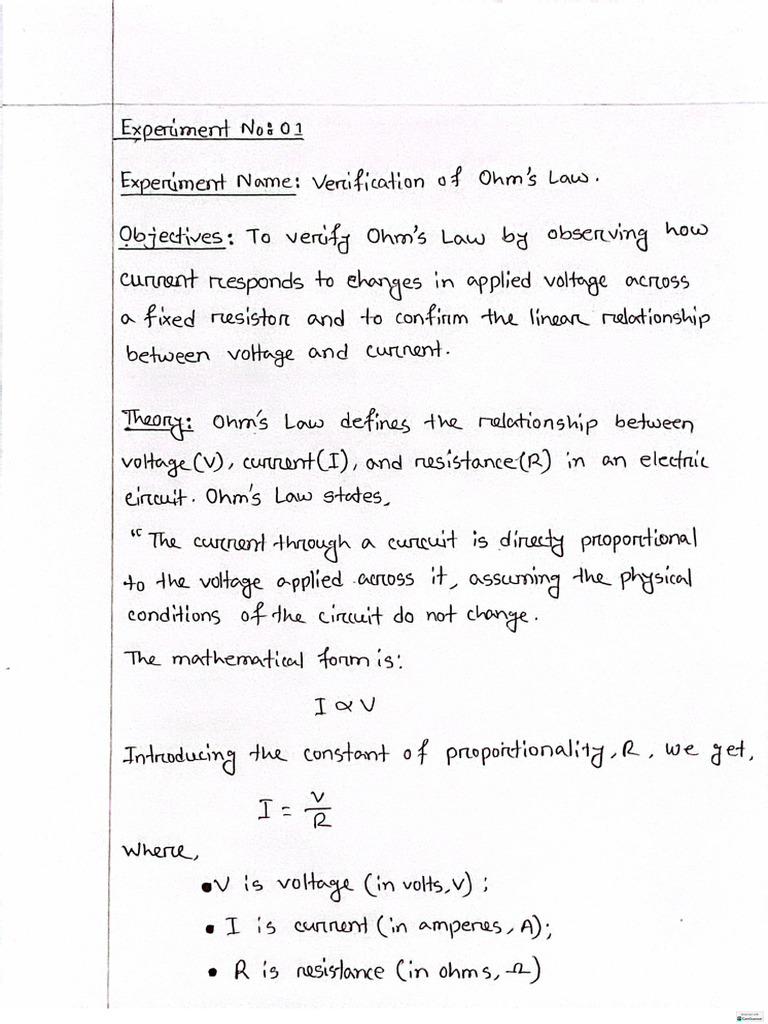 Experiment No: 01
Experiment Name: Verification of Ohm's Law.
Objectives: To verify Ohm's Law by observing how
current responds to changes in applied voltage across
a fixed resistor and to confirm the linear relationship
between voltage and current.
Theory: Ohm's Law defines the relationship between
voltage (V), current (I), and resistance (R) in an electric
circuit. Ohm's Law states,
"The current through a curcuit is directy proportional
to the voltage applied across it, assuming the physical
conditions of the circuit do not change.
The mathematical form is:
I ∝ V
Introducing the constant of proportionality, R, we get,
I = V/R
where,
• V is voltage (in volts, V);
• I is current (in amperes, A);
• R is resistance (in ohms, Ω)
CamScanner